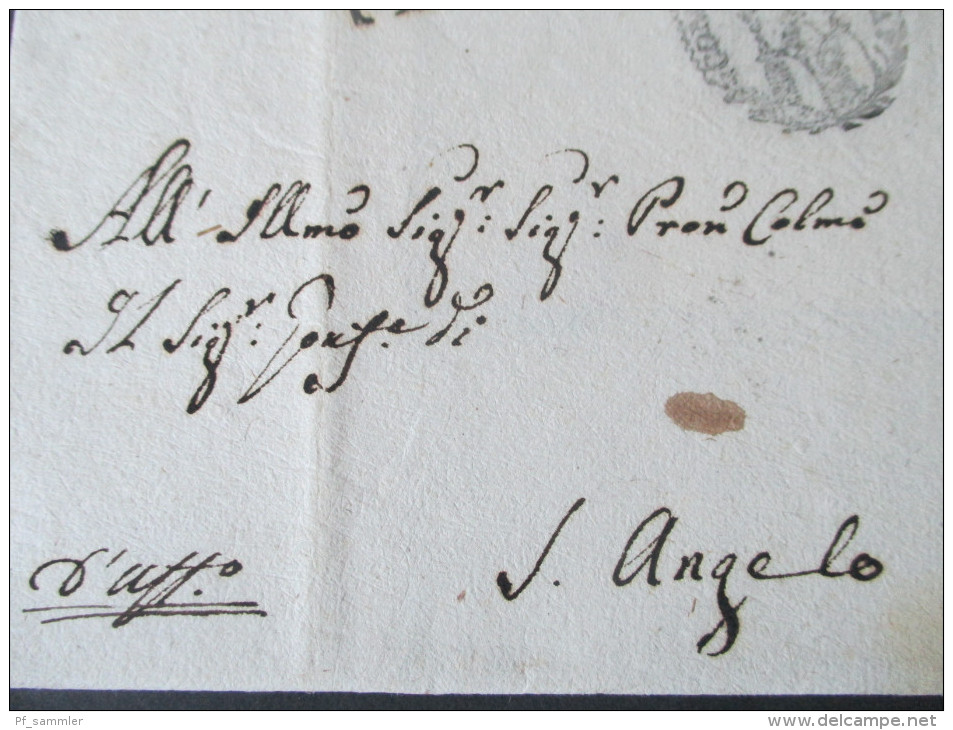 All' Illmo Sigr: Sigr: Pron Colmo
Il Sigr: Gonfe. di
S. Angelo
d'Uffo.
Pf_sammler
www.delcampe.net